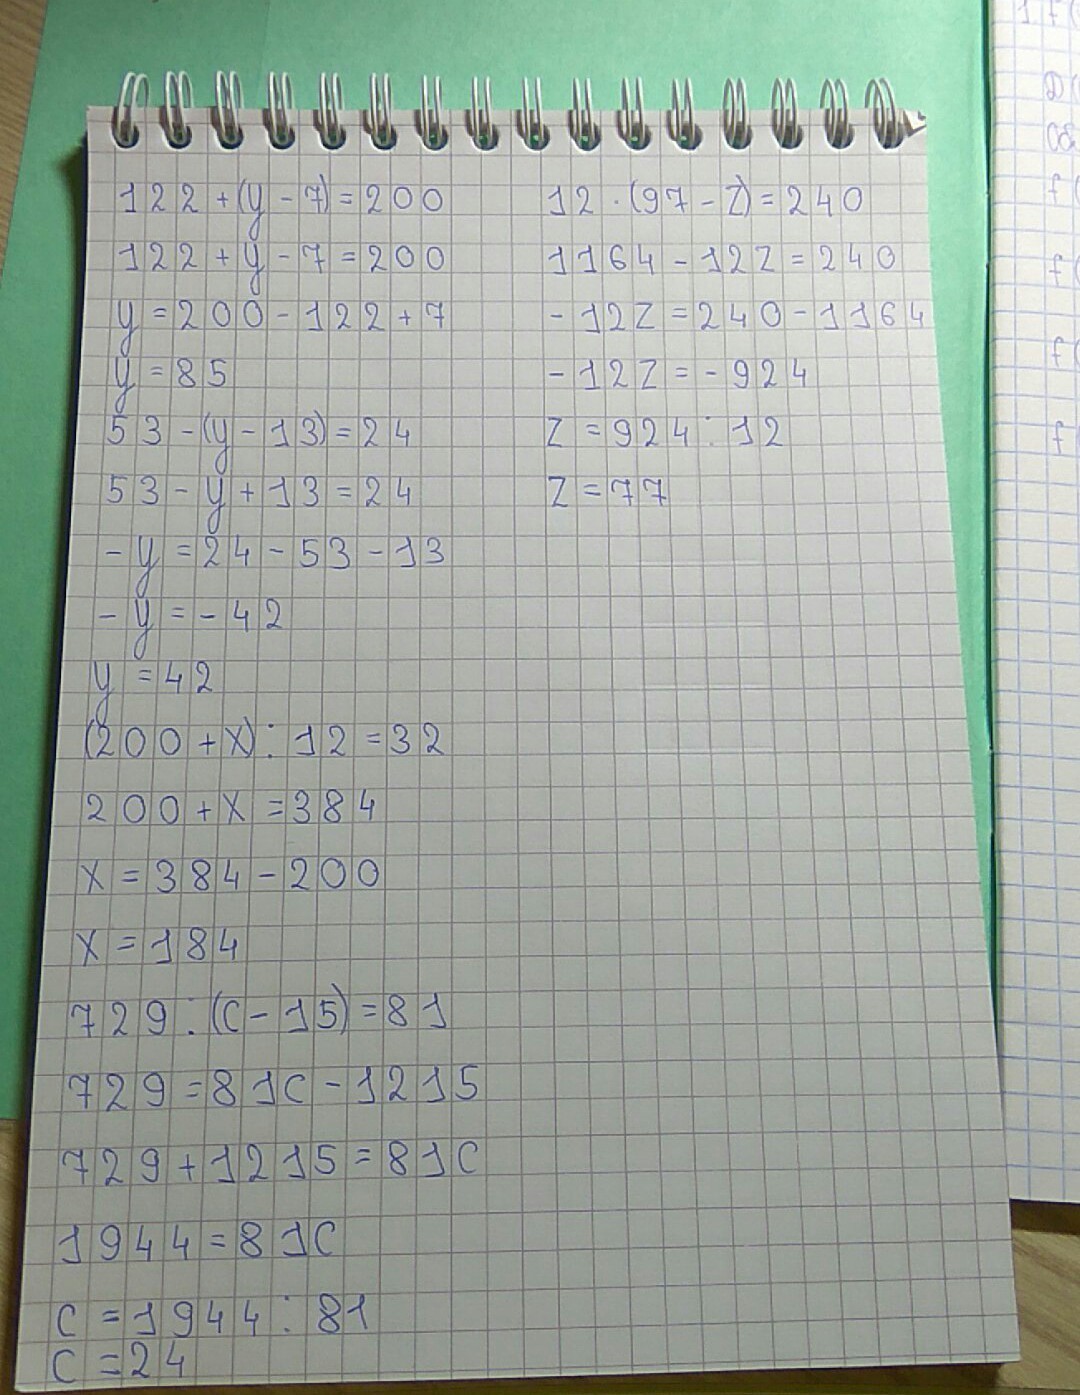 122+(y-7)=200
122+y-7=200
y=200-122+7
y=85
53-(y-13)=24
53-y+13=24
-y=24-53-13
-y=-42
y=42
(200+x):12=32
200+x=384
x=384-200
x=184
729:(c-15)=81
729=81c-1215
729+1215=81c
1944=81c
c=1944:81
c=24
12·(97-z)=240
1164-12z=240
-12z=240-1164
-12z=-924
z=924:12
z=77